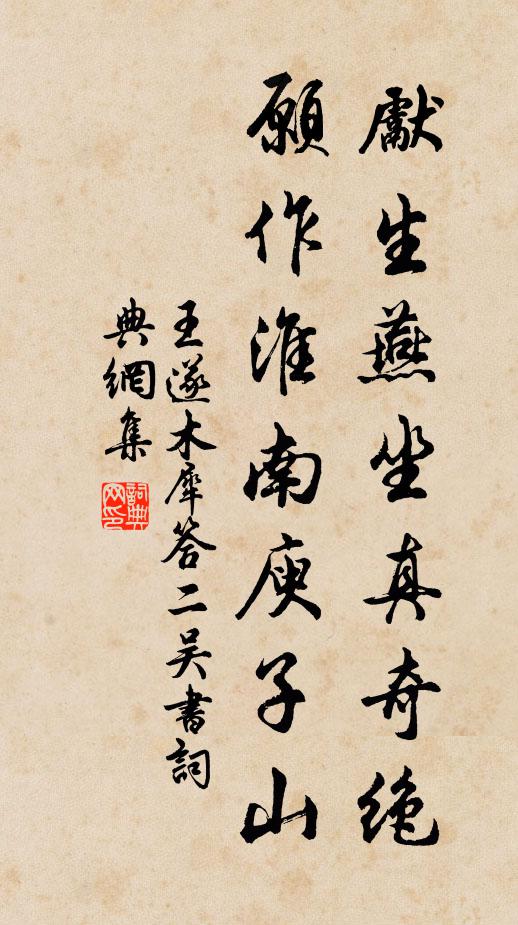 獻生燕坐真奇絶
願作淮南庾子山
王遂木犀答二吴書詞
典網集
詞典网印